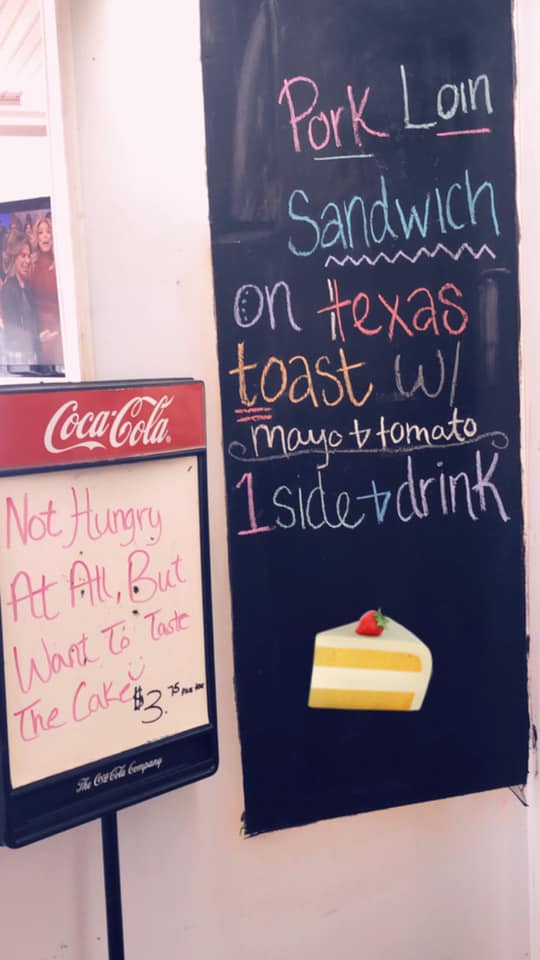 Coca-Cola
Not Hungry
At All, But
Want To Taste
The Cake
$3.75
The Coca-Cola Company
Pork Loin
Sandwich
on texas
toast w/
mayo & tomato
1 side & drink